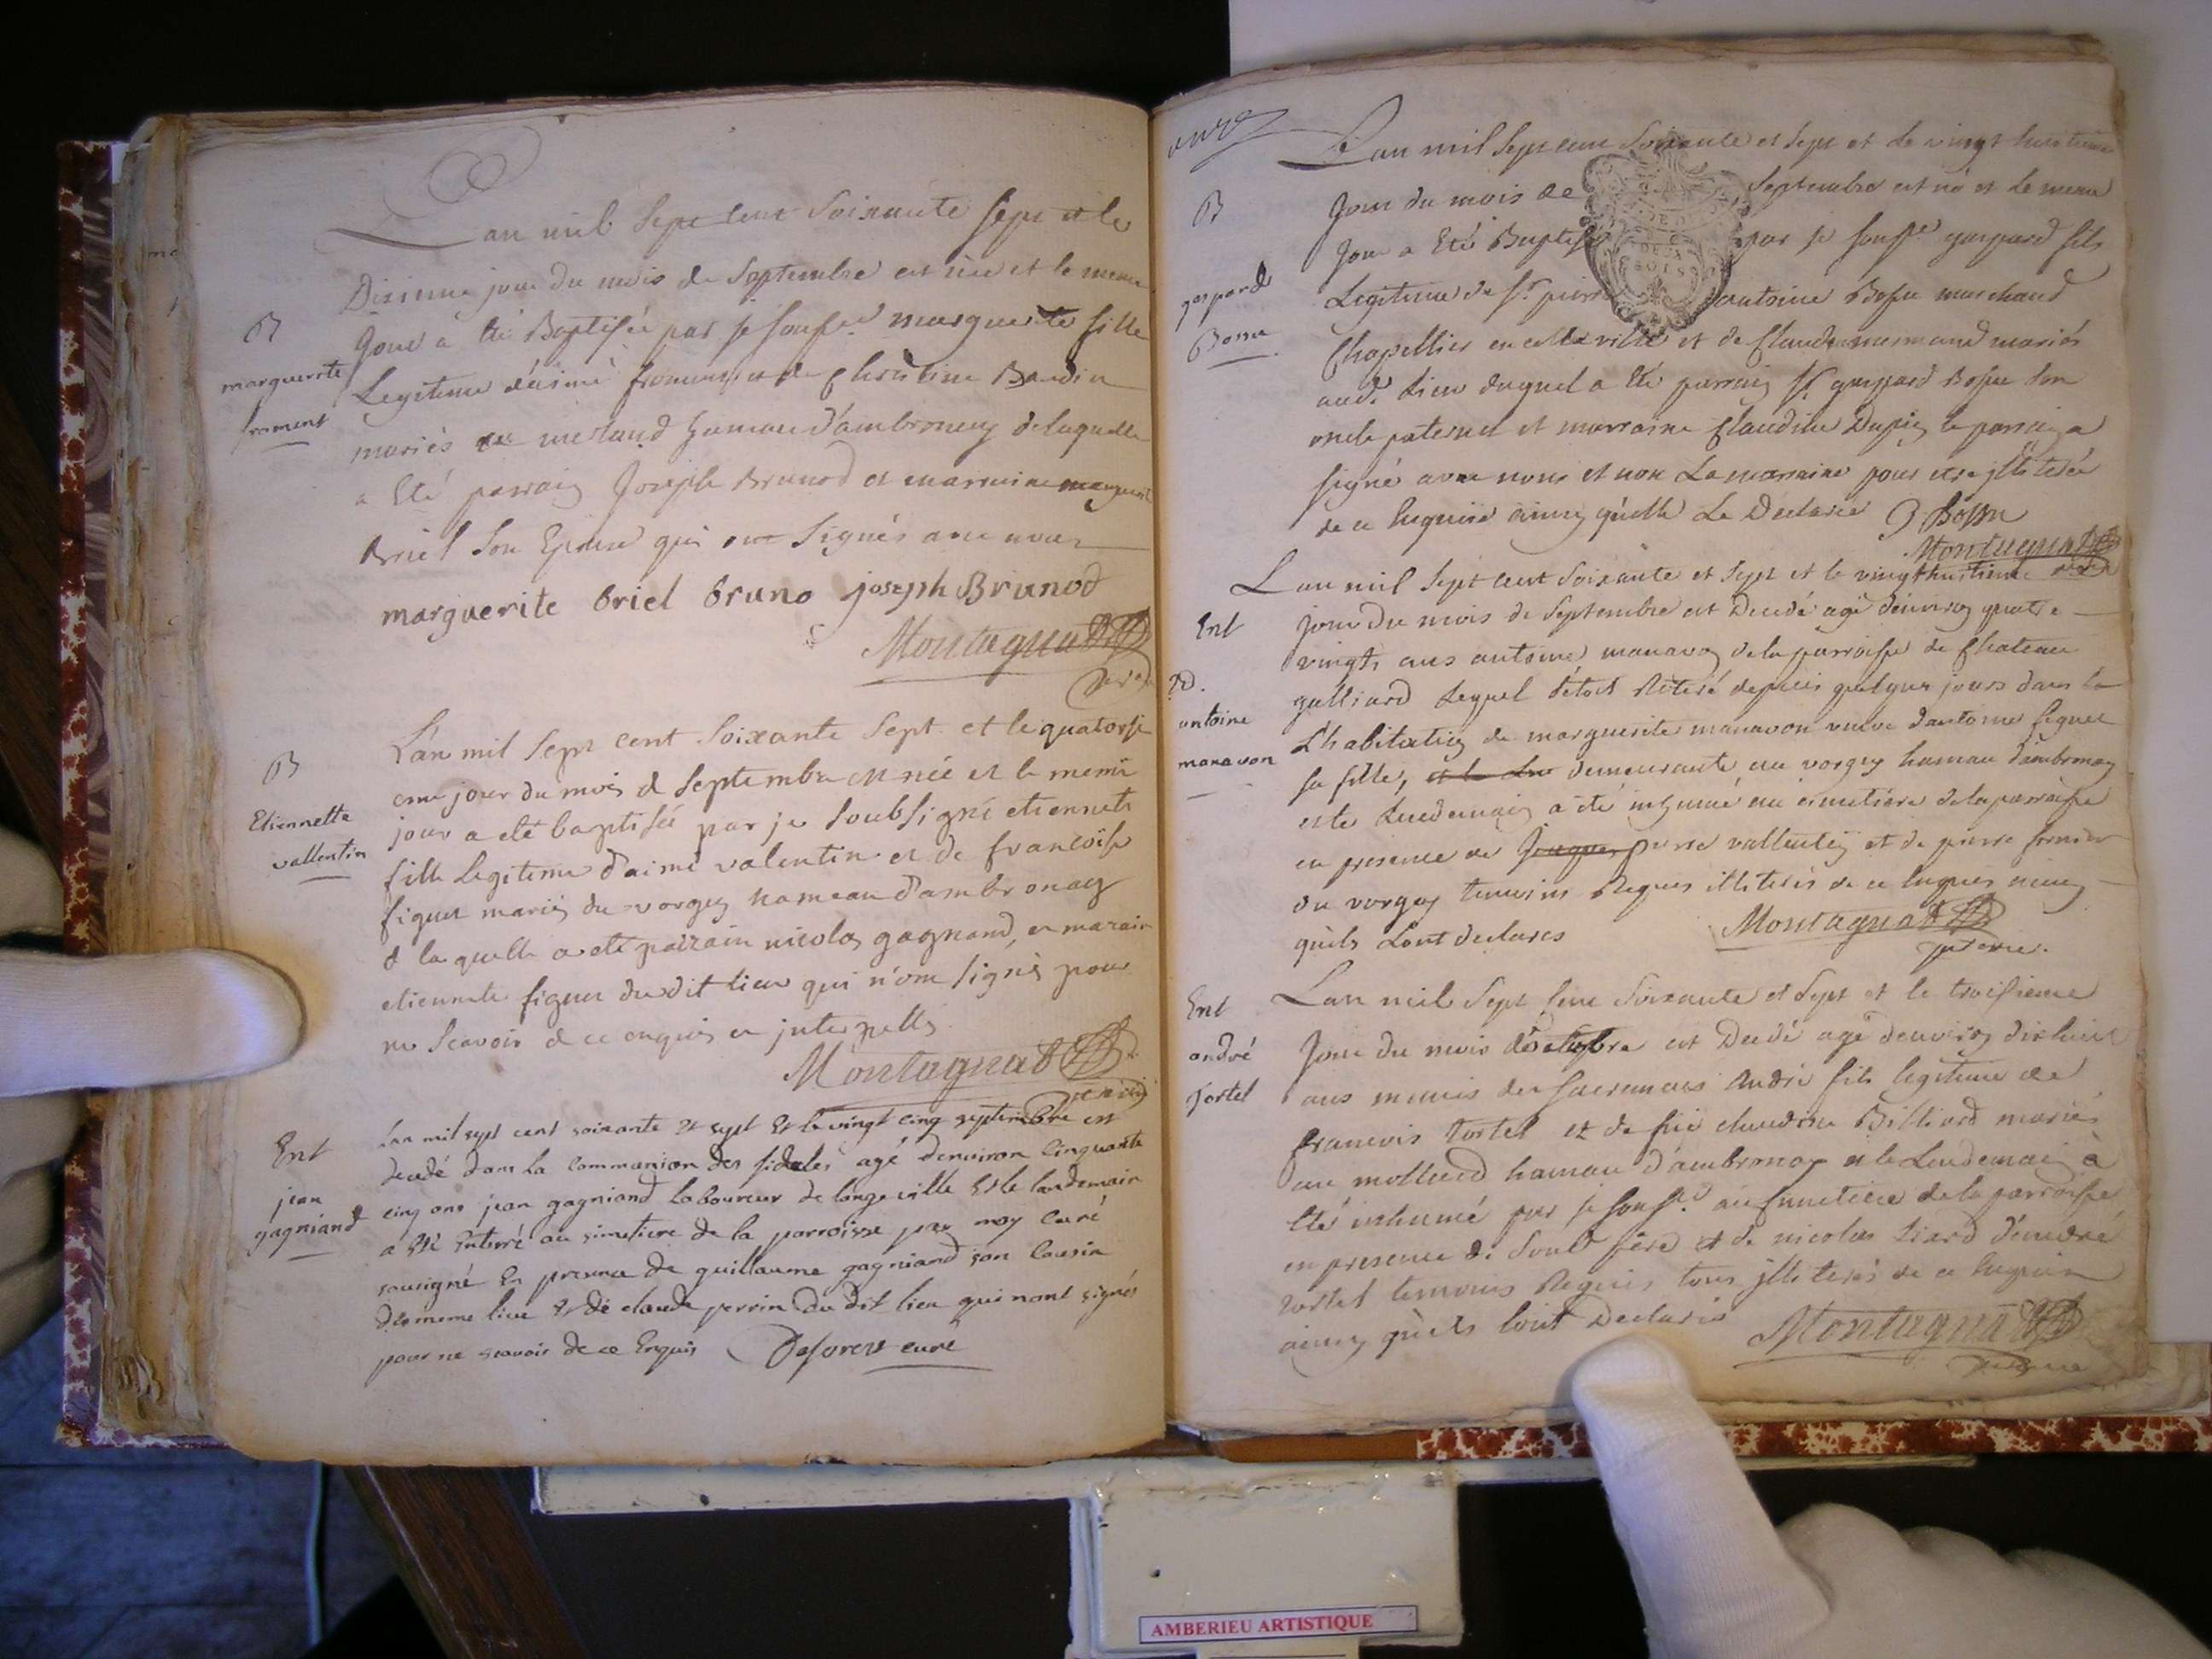 B
marguerite
froment
L'an mil Sept cent Soixante Sept et le
Dixieme jour du mois de Septembre est née et le meme
Jour a été Baptisée par je soussé marguerite fille
Legitime d'aimé froment et de Christine Baudin
mariés au merland hameau d'ambronay de laquelle
a Eté parrain Joseph Brunod et marraine marguerite
Briel Son Epouse qui ont Signés avec nous
marguerite briel bruno joseph Brunod
Montagnat
B
Etiennette
vallentin
L'an mil Sept cent Soixante Sept et le quatorsi
eme jour du mois d Septembre est née et le meme
jour a eté baptisée par je Soubsigné etiennete
fille Legitime d'aimé valentin et de francoise
figuet mariés du vorgey hameau d'ambronay
d laquelle a eté pairain nicolas gagnand, et maraine
etiennete figuet du dit lieu qui n'ont signés pour
ne Scavoir d ce enquis et interpellés
Montagnat
Ent
jean
gagniand
Lan mil sept cent soixante et sept et le vingt cinq septembre est
decedé dans la communion des fideles agé denviron Cinquante
cinq ans jean gagniand laboureur de longeville et le landemain
a été enterré au simetiere de la parroisse par moy curé
sousigné En presence de guillaume gagniand son cousin
du meme lieu et de claude perrin du dit lieu qui nont signés
pour ne scavoir de ce Enquis Deforest curé
onze
B
gaspard
Bossu
L'an mil Sept cent Soixante et Sept et le vingt huitieme
Jour du mois de Septembre est né et le meme
Jour a Eté Baptisé par je soussé gaspard fils
Legitime de Sr pierre antoine Bossu marchand
Chapellier en cette ville et de Claudine mermand mariés
aud. Lieu duquel a Eté parrain Sr gaspard Bossu Son
oncle paternel et marraine Claudine Dupin le parrain a
signé avec nous et non La marraine pour etre illiterée
de ce Enquise ainsy qu'elle Le Declaré G. Bossu
Montagnat
Ent
antoine
manavon
L'an mil Sept cent Soixante et Sept et le vingthuitieme
jour du mois de Septembre est Decedé agé d'environ quatre
vingts ans antoine manavon de la parroisse de Chateau
galliard Lequel s'étoit Retiré depuis quelques jours dans la
L'habitation de marguerite manavon veuve d'antoine figuet
sa fille, et le Len demeurante au vorgey hameau d'ambronay
et le Lendemain a été inhumé au cimetiére de la parroisse
en presence de Jaques pierre vallentin et de pierre fornier
du vorgey temoins Requis illiterés de ce Enquis ainsy
qu'ils L'ont declarés Montagnat
Ent
andré
Tortel
L'an mil Sept Cent Soixante et Sept et le troisieme
Jour du mois d'octobre est Decedé agé d'environ dix huit
ans munis des Sacremens André fils legitime de
francois tortel et de fue claudine Billiard mariés
au mollard hameau d'ambronay et le Lendemain a
Eté inhumé par je soussé au Cimetiére de la parroisse
en presence de Sond. pére et de nicolas Liard d'andré
tortel temoins Requis tous illiterés de ce Enquis
ainsy qu'ils l'ont Declarés Montagnat
AMBERIEU ARTISTIQUE